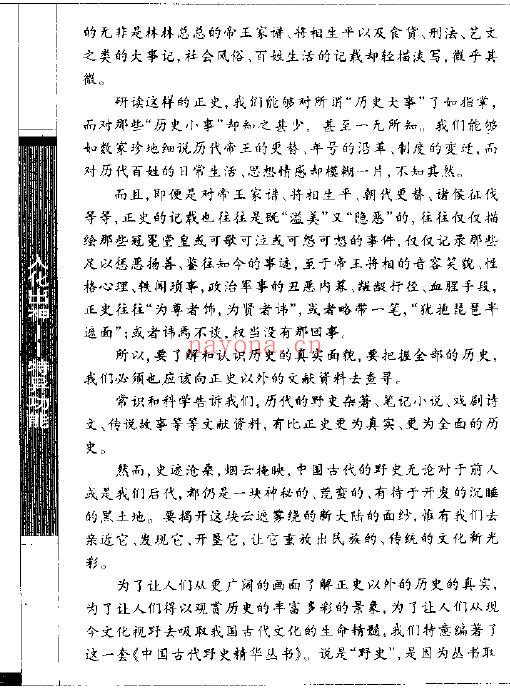 的无非是林林总总的帝王家谱、将相生平以及食货、刑法、艺文
之类的大事记,社会风俗、百姓生活的记载却轻描淡写,微乎其
微。
研读这样的正史,我们能够对所谓“历史大事”了如指掌,
而对那些“历史小事”却知之甚少,甚至一无所知。我们能够
如数家珍地细说历代帝王的更替、年号的沿革、制度的变迁,而
对历代百姓的日常生活、思想情感却模糊一片,不知其然。
而且,即便是对帝王家谱、将相生平、朝代更替、诸侯征伐
等等,正史的记载也往往是既“溢美”又“隐恶”的,往往仅仅描
绘那些冠冕堂皇或可歌可泣或可怨可怒的事件,仅仅记录那些
足以惩恶扬善、鉴往知今的事迹,至于帝王将相的音容笑貌、性
格心理、轶闻琐事,政治军事的丑恶内幕、龌龊行径、血腥手段,
正史往往“为尊者饰,为贤者讳”,或者略带一笔,“犹抱琵琶半
遮面”;或者讳而不谈,权当没有那回事。
所以,要了解和认识历史的真实面貌,要把握全部的历史,
我们必须也应该向正史以外的文献资料去查寻。
常识和科学告诉我们,历代的野史杂著、笔记小说、戏剧诗
文、传说故事等等文献资料,有比正史更为真实、更为全面的历
史。
然而,史迹沧桑,烟云掩映,中国古代的野史无论对于前人
或是我们后代,都仍是一块神秘的、荒蛮的、有待于开发的沉睡
的黑土地。要揭开这块云遮雾绕的新大陆的面纱,惟有我们去
亲近它、发现它、开垦它,让它重放出民族的、传统的文化新光
彩。
为了让人们从更广阔的画面了解正史以外的历史的真实,
为了让人们得以观赏历史的丰富多彩的景象,为了让人们从现
今文化视野去吸取我国古代文化的生命精髓,我们特意编著了
这一套《中国古代野史精华丛书》。说是“野史”,是因为丛书取
入化出神——特异功能
nayona.cn